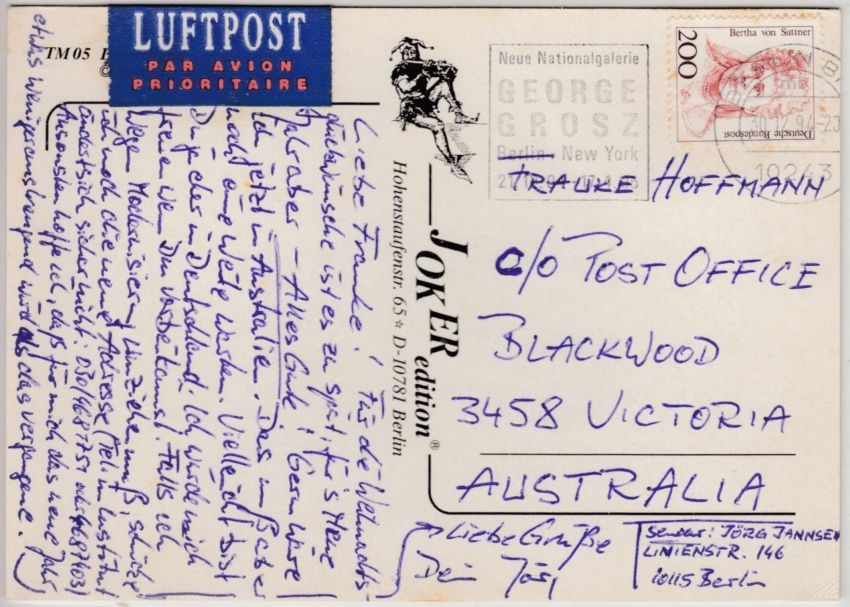 LUFTPOST
PAR AVION
PRIORITAIRE
TM 05
Liebe Frauke! Für die Weihnachts-
glückwünsche ist es zu spät, für's Neue
Jahr aber – Alles Gute! Gern wäre
ich jetzt in Australien. Das muß aber
noch eine Weile warten. Vielleicht bist
Du ja eher in Deutschland. Ich würde mich
freuen wenn Du vorbeikommst. Falls ich
wegen Modernisierung umziehen muß, schicke
ich noch die neue Adresse (Tel. im Institut
ändert sich sicher nicht: 030/4468
Ansonsten hoffe ich, daß für mich das neue Jahr
etwas weniger anstrengend wird als das vergangene.
Liebe Grüße
Dein Jörg
JOKER edition®
Hohenstaufenstr. 65 * D-10781 Berlin
Neue Nationalgalerie
GEORGE
GROSZ
Berlin - New York
Bertha von Suttner
200
Deutsche Bundespost
10243
FRAUKE HOFFMANN
c/o POST OFFICE
BLACKWOOD
3458 VICTORIA
AUSTRALIA
Sender: JÖRG JANNSEN
LINIENSTR. 146
10115 Berlin